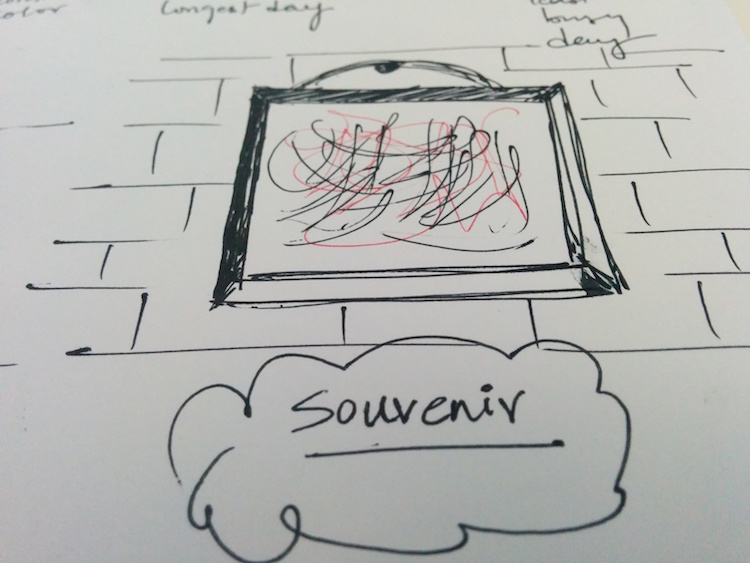 color
Longest day
busy
deny
Souvenir